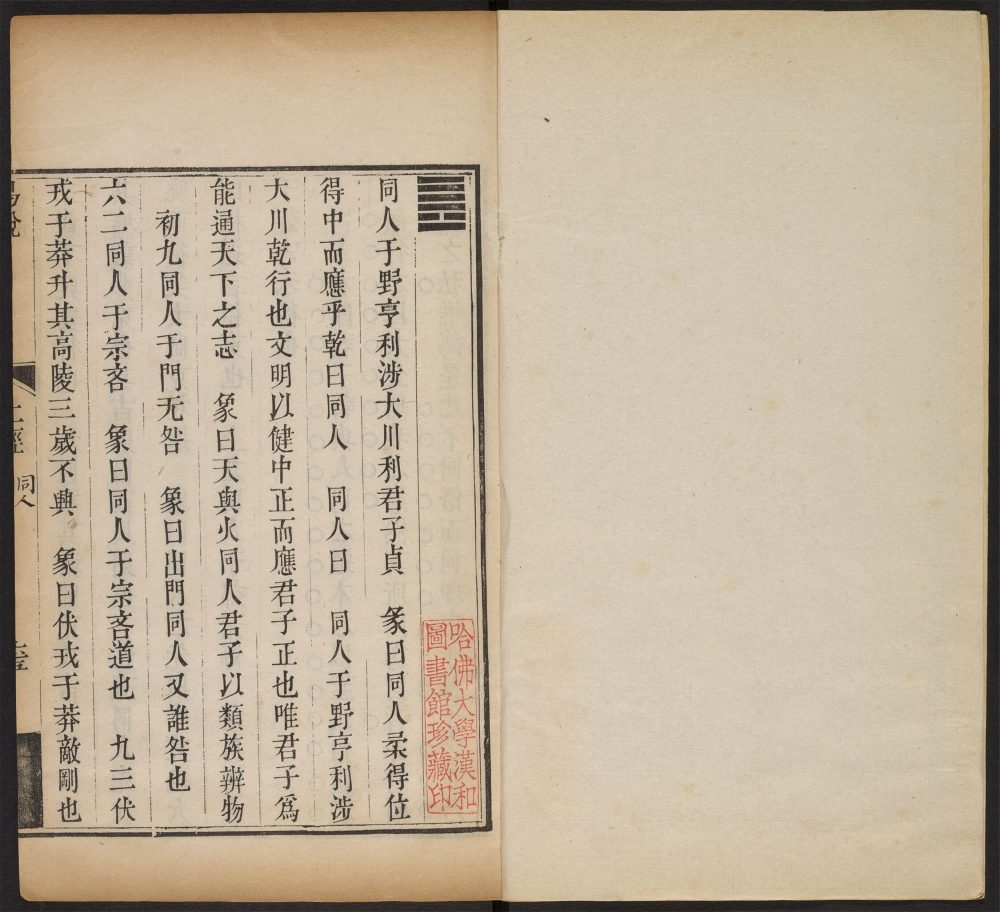 ䷌
同人于野亨利涉大川利君子貞　彖曰同人柔得位
得中而應乎乾曰同人　同人曰　同人于野亨利涉
大川乾行也文明以健中正而應君子正也唯君子爲
能通天下之志　象曰天與火同人君子以類族辨物
初九同人于門无咎　象曰出門同人又誰咎也
六二同人于宗吝　象曰同人于宗吝道也　九三伏
戎于莽升其高陵三歲不興　象曰伏戎于莽敵剛也
易說
上經　同人
哈佛大學漢和
圖書館珍藏印